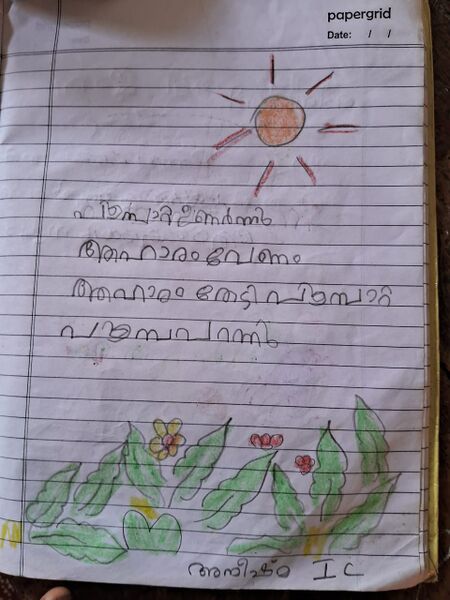 papergrid
Date: / /
പൂമ്പാറ്റ ഉണർന്നു
ആഹാരം വേണം
ആഹാരം തേടി പൂമ്പാറ്റ
പറന്നു
I C